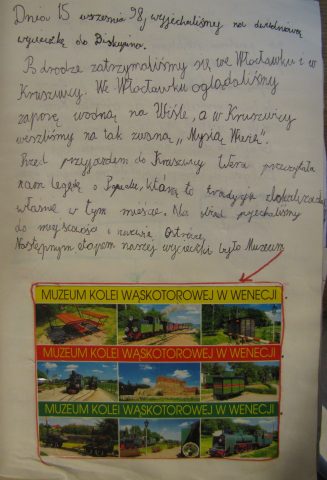 Dnia 15 września 98, wyjechaliśmy na dwudniową
wycieczkę do Biskupina.
Po drodze zatrzymaliśmy się we Włocławku i w
Kruszwicy. We Włocławku oglądaliśmy
zaporę wodną na Wiśle, a w Kruszwicy
weszliśmy na tak zwaną „Mysią Wieżę".
Przed przyjazdem do Kruszwicy Wera przeczytała
nam legędę o Popielu, którą to tradycja
właśnie w tym mieście. Na obiad pojechaliśmy
do miejscowości o nazwie Ostrówek
Następnym etapem naszej wycieczki było Muzeum
MUZEUM KOLEI WĄSKOTOROWEJ W WENECJI
MUZEUM KOLEI WĄSKOTOROWEJ W WENECJI
MUZEUM KOLEI WĄSKOTOROWEJ W WENECJI